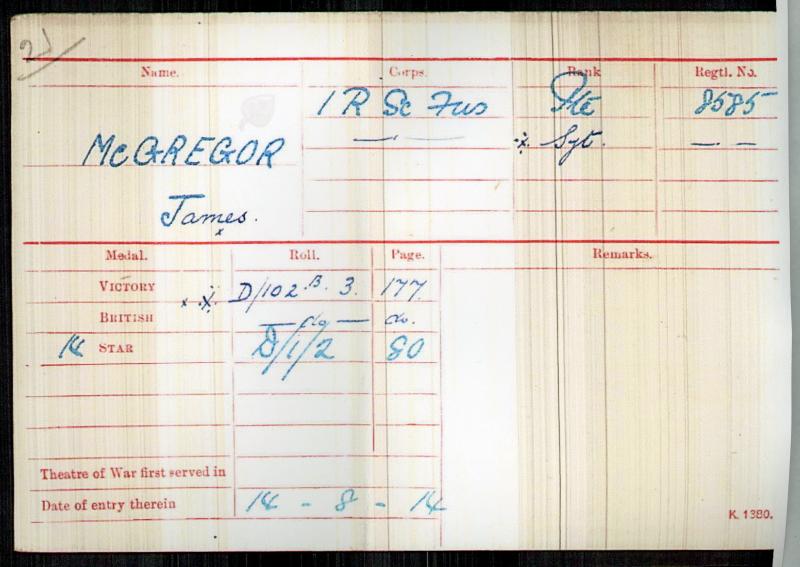 21
Name. Corps. Rank Regtl. No.
1 R Sc Fus Pte 8585
McGREGOR — — x Sgt. — —
James.
x
Medal. Roll. Page. Remarks.
VICTORY x x D/102 B. 3. 177
BRITISH — do — do.
14 STAR D/1/2 80
Theatre of War first served in
Date of entry therein 14 - 8 - 14
K. 1380.